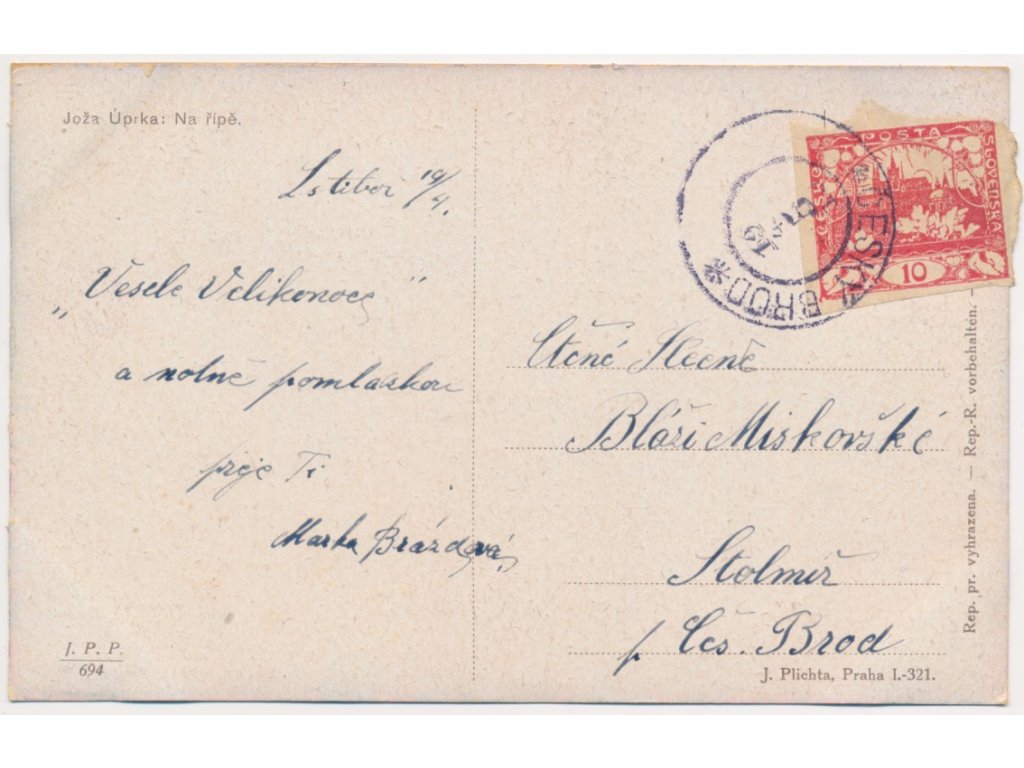 Joža Úprka: Na řípě.
Lstiboř 19/4.
„Veselé Velikonoce"
a notně pomlaskou
přeje Ti
Marka Brázdová,
J. P. P.
694
POSTA
ČESKO
SLOVENSKA
10
*ČESKÝ BROD*
19
Ctěné Slečně
Bláži Miskovské
Stolmíř
p. Čes. Brod
J. Plichta, Praha I.-321.
Rep. pr. vyhrazena. — Rep.-R. vorbehalten. —